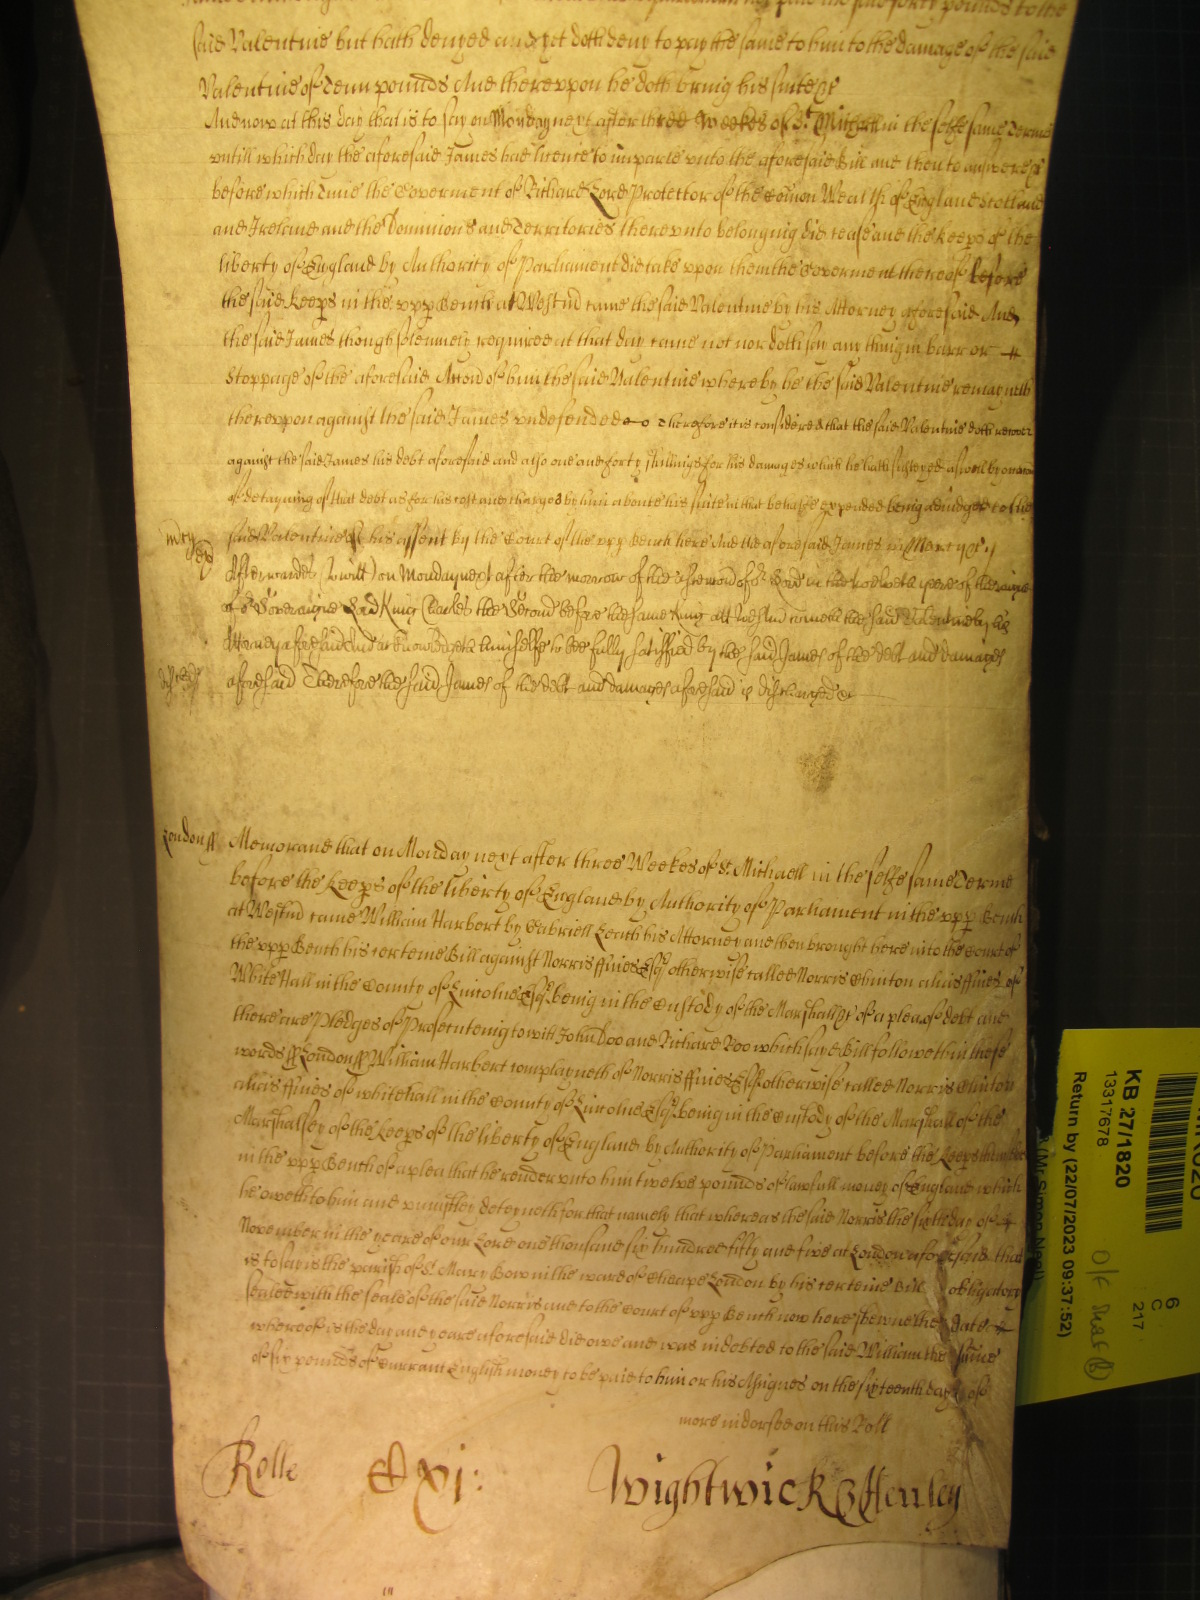 said Valentine but hath denyed and yet doth deny to pay the same to him to the damage of the said
Valentine of Tenn pounds And thereupon he doth bring his suite &c
And now at this day that is to say on Monday next after three Weekes of St Michaell in the selfe same Terme
untill which day the aforesaid James had licence to imparle unto the aforesaid Bill and then to answere &c
before which time the Goverment of Richard Lord Protector of the Comon Wealth of England Scotland
and Ireland and the Dominions and Territories thereunto belonging did cease and the Keeps of the
liberty of England by Authority of Parliament did take upon them the Goverment thereof before
the said Keeps in the upp Bench at Westmr came the said Valentine by his Attorney aforesaid And
the said James though solemnely required at that day came not nor doth say any thing in barr or
Stoppage of the aforesaid Accon of him the said Valentine whereby he the said Valentine remayneth
thereupon against the said James undefended Therefore it is considered that the said Valentine doth recover
against the said James his debt aforesaid and also one and forty shillings for his damages which he hath susteyned aswell by occacon
of detayning of that debt as for his costs and charges by him aboute his suite in that behalfe expended being adiudged to the
said Valentine by his assent by the Court of the upp Bench here And the aforesaid James in Mercy &c
mcy
Afterwards (to witt) on Monday next after the morrow of the Ascencon of or Lord in the twelveth yeare of the raigne
of or Soveraigne Lord King Charles the Second before the same King att Westmr cometh the said Valentine by his
Attorney aforesaid And acknowledgeth himselfe to bee fully satisfied by the said James of the debt and damages
aforesaid Therefore the said James of the debt and damages aforesaid is discharged &c
London ss
Memorand that on Monday next after three Weekes of St Michaell in the selfe same Terme
before the Keeps of the liberty of England by Authority of Parliament in the upp Bench
at Westmr came William Harbert by Gabriell Leath his Attorney and then brought here into the Court of
the upp Bench his certeine Bill against Norris ffines Esqr otherwise called Norris Clinton alias ffines of
White Hall in the County of Lincolne Esqr being in the Custody of the Marshall &c of a plea of debt and
there are Pledges of Prosecuteing to witt John Doo and Richard Roo which said Bill followeth in these
words ss London ss William Harbert complayneth of Norris ffines Esqr otherwise called Norris Clinton
alias ffines of whitehall in the County of Lincolne Esqr being in the Custody of the Marshall of the
Marshalsey of the Keeps of the liberty of England by Authority of Parliament before the Keeps
in the upp Bench of a plea that he render unto him twelve pounds of lawfull money of England which
he oweth to him and uniustley deteyneth for that namely that whereas the said Norris the sixth day of
November in the yeare of our Lord one thousand six hundred fifty and five at London aforesaid that
is to say in the parish of St Mary Bow in the ward of Cheape London by his certeine Bill obligatory
sealed with the seale of the said Norris and to the Court of upp Bench now here shewne the date
whereof is the day and yeare aforesaid did owe and was indebted to the said William the same
of six pounds of Currant English money to be paid to him or his Assignes on the sixteenth day of
more indorsed on this Roll
Rolle
xi:
Wightwick & Henley
KB 27/1820
13317678
Return by (22/07/2023 09:37:52)
6
C
217